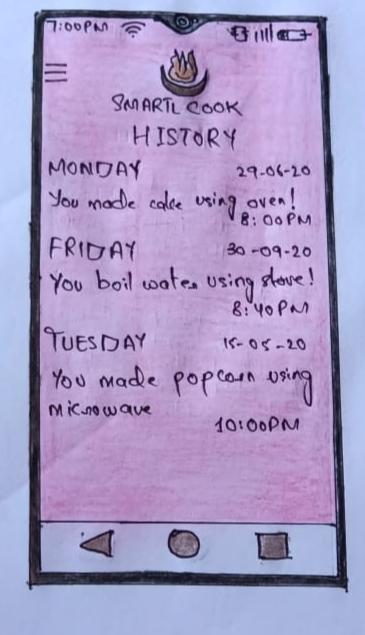 7:00PM
SMARTL COOK
HISTORY
MONDAY 29-06-20
You made cake using oven!
8:00PM
FRIDAY 30-09-20
You boil water using stove!
8:40PM
TUESDAY 15-05-20
You made popcorn using
microwave
10:00PM